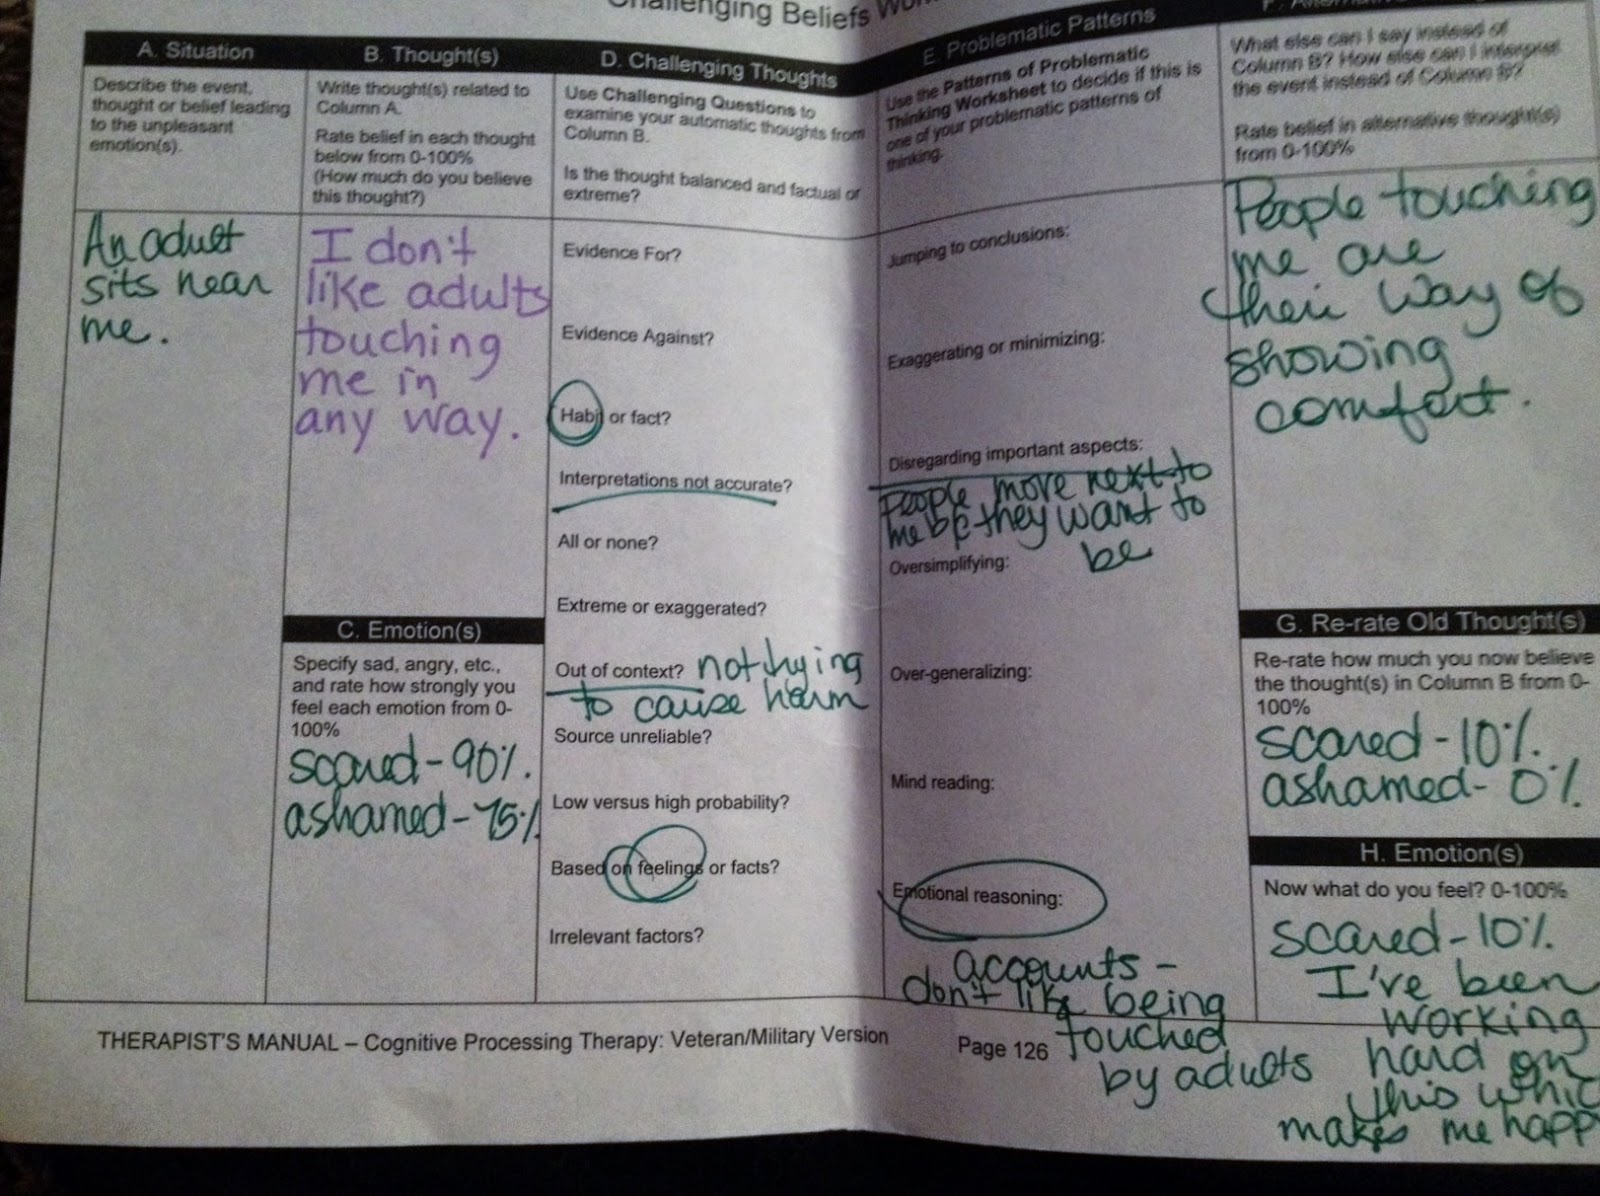 Challenging Beliefs
A. Situation
Describe the event,
thought or belief leading
to the unpleasant
emotion(s).
An adult
sits near
me.
B. Thought(s)
Write thought(s) related to
Column A.
Rate belief in each thought
below from 0-100%
(How much do you believe
this thought?)
I don't
like adults
touching
me in
any way.
C. Emotion(s)
Specify sad, angry, etc.,
and rate how strongly you
feel each emotion from 0-
100%
scared - 90%.
ashamed - 75%
D. Challenging Thoughts
Use Challenging Questions to
examine your automatic thoughts from
Column B.
Is the thought balanced and factual or
extreme?
Evidence For?
Evidence Against?
Habit or fact?
Interpretations not accurate?
All or none?
Extreme or exaggerated?
Out of context? not trying
to cause harm
Source unreliable?
Low versus high probability?
Based on feelings or facts?
Irrelevant factors?
E. Problematic Patterns
Use the Patterns of Problematic
Thinking Worksheet to decide if this is
one of your problematic patterns of
thinking.
Jumping to conclusions:
Exaggerating or minimizing:
Disregarding important aspects:
People move next to
me b/c they want to
be
Oversimplifying:
Over-generalizing:
Mind reading:
Emotional reasoning:
accounts -
don't like being
touched
by adults
What else can I say instead of
Column B? How else can I interpret
the event instead of Column B?
Rate belief in alternative thought(s)
from 0-100%
People touching
me are
their way of
showing
comfort.
G. Re-rate Old Thought(s)
Re-rate how much you now believe
the thought(s) in Column B from 0-
100%
scared - 10%.
ashamed - 0%.
H. Emotion(s)
Now what do you feel? 0-100%
scared - 10%.
I've been
working
hard on
this whic
makes me happ
THERAPIST'S MANUAL – Cognitive Processing Therapy: Veteran/Military Version
Page 126